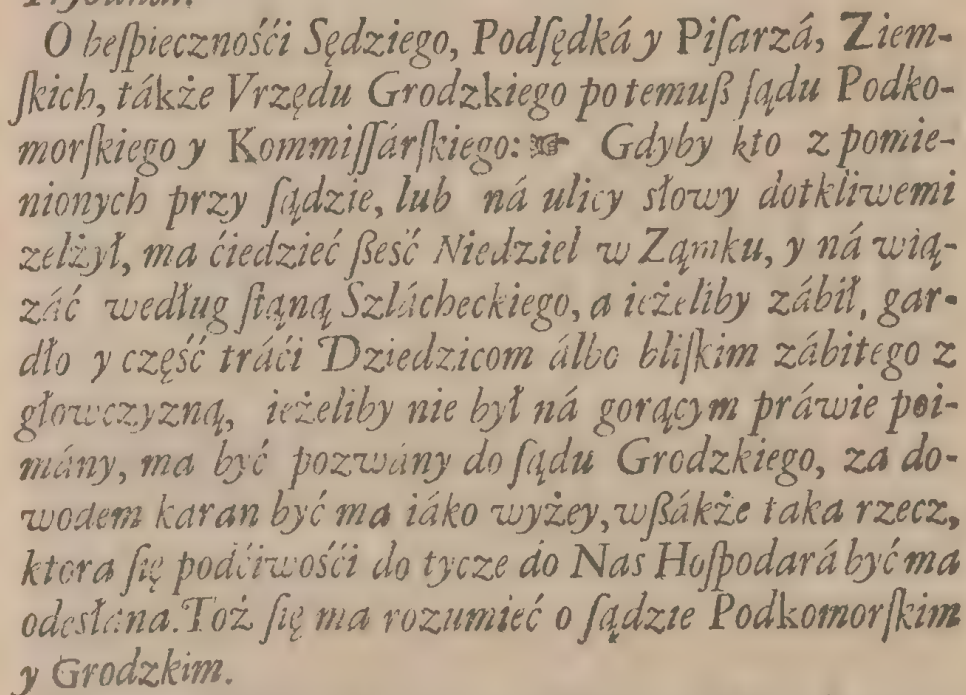 O beſpiecznośći Sędziego, Podſędká y Piſarzá, Ziem-
ſkich, tákże Vrzędu Grodzkiego po temuß ſądu Podko-
morſkiego y Kommiſſárſkiego: ☞ Gdyby kto z pomie-
nionych przy ſądzie, lub ná ulicy słowy dotkliwemi
zelżył, ma ćiedzieć ßeść Niedziel w Ząmku, y ná wią-
záć według ſtąną Szlácheckiego, a ieżeliby zábił, gar-
dło y część tráći Dziedzicom álbo bliſkim zábitego z
głowczyzną, ieżeliby nie był ná gorącym práwie poi-
mány, ma być pozwány do ſądu Grodzkiego, za do-
wodem karan być ma iáko wyżey, wßákże taka rzecz,
ktora ſię podćiwośći do tycze do Nas Hoſpodará być ma
odesłána. Toż ſię ma rozumieć o ſądzie Podkomorſkim
y Grodzkim.